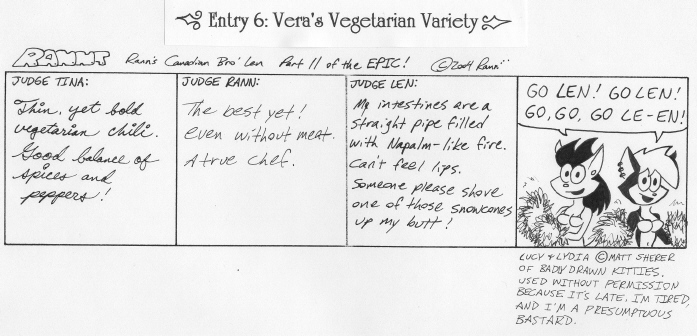 Entry 6: Vera's Vegetarian Variety
RANNT Rann's Canadian Bro' Len Part 11 of the EPIC! ©2004 Rann
JUDGE TINA:
Thin, yet bold
vegetarian chili.
Good balance of
spices and
peppers!
JUDGE RANN:
The best yet!
Even without meat.
A true chef.
JUDGE LEN:
My intestines are a
straight pipe filled
with Napalm-like fire.
Can't feel lips.
Someone please shove
one of those snowcones
up my butt!
GO LEN! GO LEN!
GO, GO, GO LE-EN!
LUCY & LYDIA ©MATT SHERER
OF BADLY DRAWN KITTIES.
USED WITHOUT PERMISSION
BECAUSE IT'S LATE, I'M TIRED,
AND I'M A PRESUMPTUOUS
BASTARD.